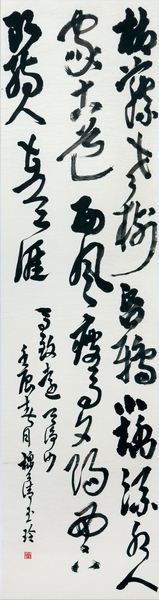 枯藤老树昏鸦小桥流水人
家古道西风瘦马夕阳西下
断肠人在天涯
马致远天净沙
壬辰春月